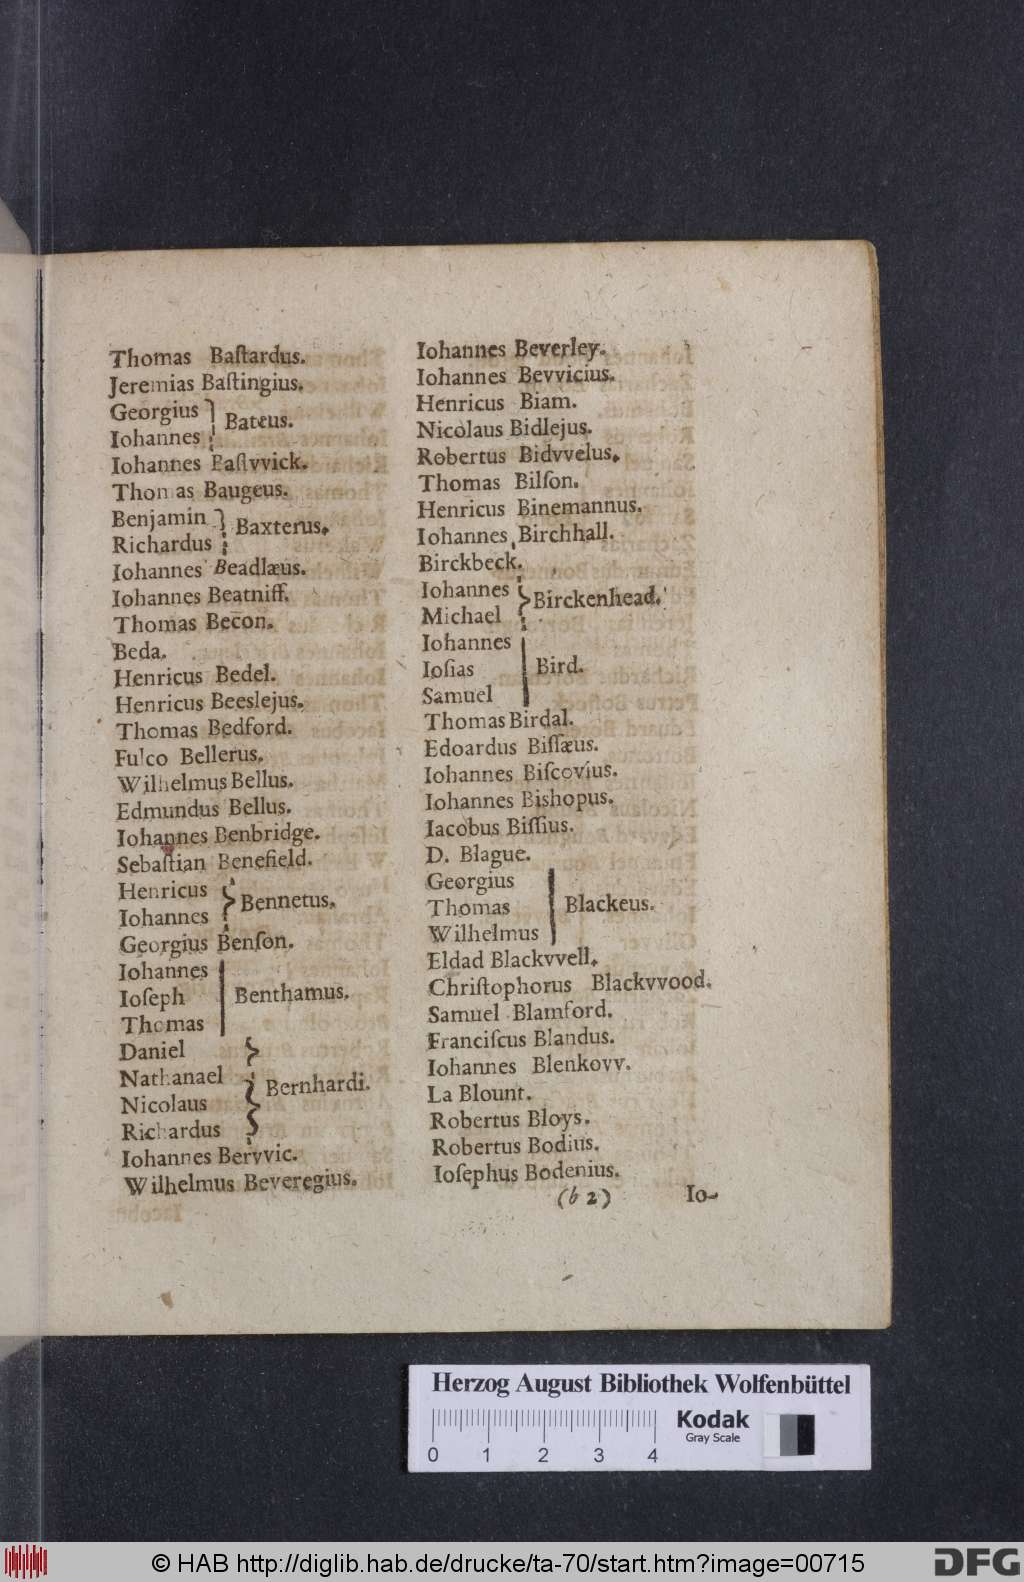 Thomas Baſtardus.
Jeremias Baſtingius.
Georgius
Iohannes } Bateus.
Iohannes Baſtvvick.
Thomas Baugeus.
Benjamin
Richardus } Baxterus.
Iohannes Beadlæus.
Iohannes Beatniff.
Thomas Becon.
Beda.
Henricus Bedel.
Henricus Beeslejus.
Thomas Bedford.
Fulco Bellerus.
Wilhelmus Bellus.
Edmundus Bellus.
Iohannes Benbridge.
Sebaſtian Benefield.
Henricus
Iohannes } Bennetus.
Georgius Benſon.
Iohannes
Ioſeph
Thomas | Benthamus.
Daniel
Nathanael
Nicolaus
Richardus } Bernhardi.
Iohannes Bervvic.
Wilhelmus Beveregius.
Iohannes Beverley.
Iohannes Bevvicius.
Henricus Biam.
Nicolaus Bidlejus.
Robertus Bidvvelus.
Thomas Bilſon.
Henricus Binemannus.
Iohannes Birchhall.
Birckbeck.
Iohannes
Michael } Birckenhead.
Iohannes
Ioſias
Samuel | Bird.
Thomas Birdal.
Edoardus Biſſæus.
Iohannes Biſcovius.
Iohannes Bishopus.
Iacobus Biſſius.
D. Blague.
Georgius
Thomas
Wilhelmus | Blackeus.
Eldad Blackvvell.
Chriſtophorus Blackvvood.
Samuel Blamford.
Franciſcus Blandus.
Iohannes Blenkovv.
La Blount.
Robertus Bloys.
Robertus Bodius.
Ioſephus Bodenius.
(b 2) Io-
Herzog August Bibliothek Wolfenbüttel
Kodak
Gray Scale
0 1 2 3 4
© HAB http://diglib.hab.de/drucke/ta-70/start.htm?image=00715
DFG